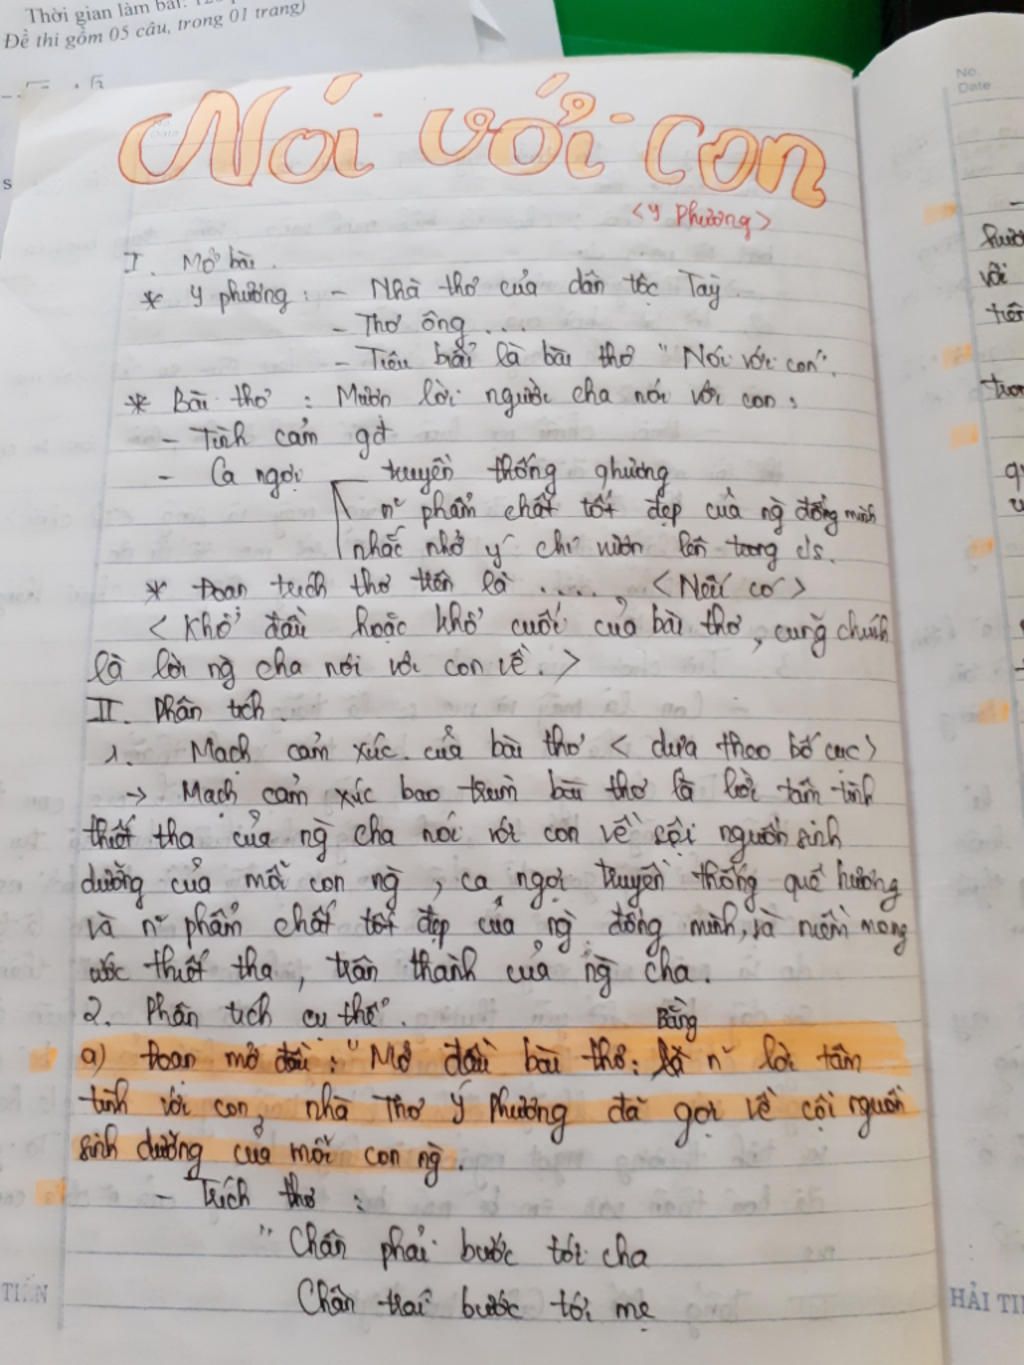 Thời gian làm bài: 12
Đề thi gồm 05 câu, trong 01 trang)
No.
Date
Nói với con
<Y Phương>
I. Mở bài.
* Y phương: - Nhà thơ của dân tộc Tày.
- Thơ ông...
- Tiêu biểu là bài thơ "Nói với con".
* Bài thơ: Mượn lời người cha nói với con:
- Tình cảm gđ
- Ca ngợi truyền thống qhương
n~ phẩm chất tốt đẹp của ng` đồng mình
nhắc nhở ý chí vươn lên trong c/s.
* Đoạn trích thơ trên là ...., <Nếu có>
<Khổ đầu hoặc khổ cuối của bài thơ, cung~ chính
là lời ng` cha nói với con về.>
II. Phân tích.
1. Mạch cảm xúc của bài thơ <dựa theo bố cục>
→ Mạch cảm xúc bao trùm bài thơ là lời tâm tình
thiết tha của ng` cha nói với con về cội nguồn sinh
dưỡng của mỗi con ng`, ca ngợi truyền thống quê hương
và n~ phẩm chất tốt đẹp của ng` đồng mình, và niềm mong
ước thiết tha, trân thành của ng` cha.
2. Phân tích cụ thể.
Bằng
a) Đoạn mở đầu: "Mở đầu bài thơ: n~ lời tâm
tình với con, nhà Thơ Y Phương đã gợi về cội nguồn
sinh dưỡng của mỗi con ng`.
- Trích thơ:
"Chân phải bước tới cha
Chân trái bước tới mẹ
TIẾN
No.
Date
hươ
với
tiên
tron
HẢI TIẾ